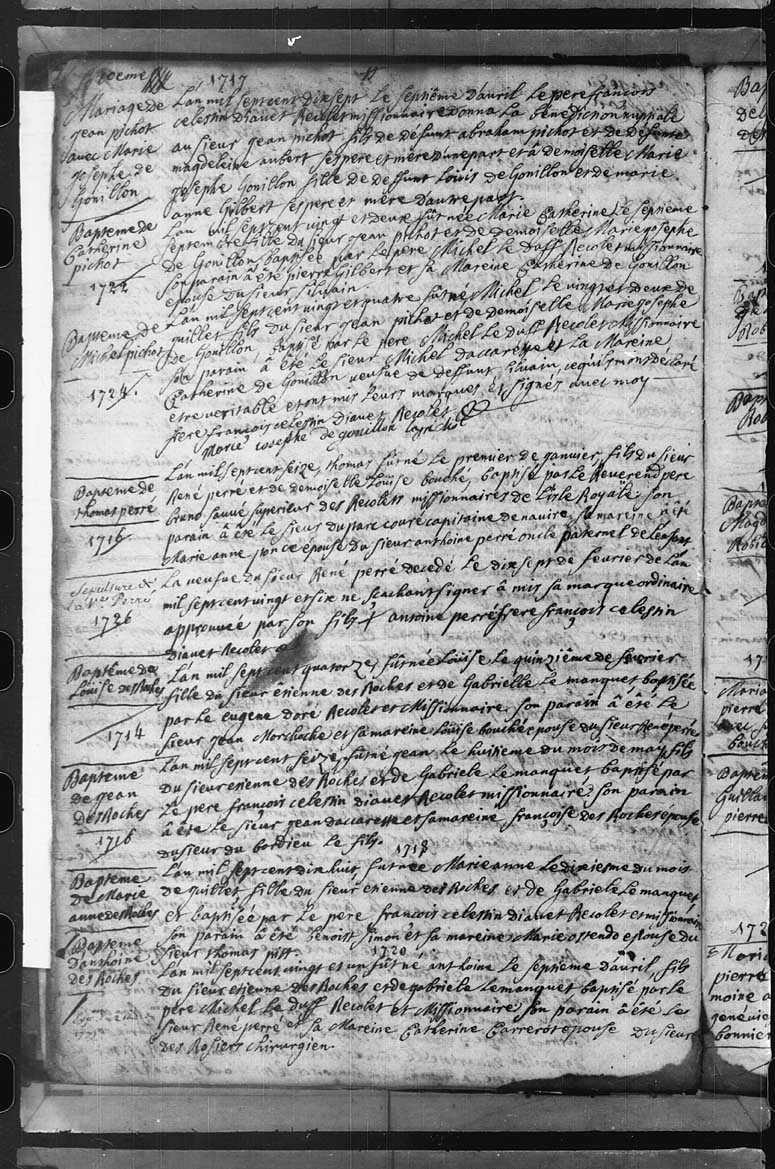 1717
Mariage de
jean pichot
avec Marie
Josephe de
Gonillon
L'an mil sept cent dix sept Le septiême D'auril Le pere françois
celestin Diauet Recolet missionnaire Donna La benediction nuptiale
au sieur jean pichot fils de defunt abraham pichot et de defunte
magdeleine aubert ses pere et mere d'une part et â demoiselle Marie
josephe Gonillon fille de deffunt Loüis de Gonillon et de marie
anne Gilbert ses pere et mere d'autre part.
Bapteme de
Catherine
pichot
1722
L'an mil sept cent vingt et deux fût née Marie Catherine Le septieme
septembre fille du sieur jean pichot et de demoiselle Marie josephe
de Gonillon baptisée par Le pere Michel Le duff Recolet missionnaire
son parain â été pierre Gilbert et sa Mareine Catherine de Gonillon
epouse du sieur
Bapteme de
Michel pichot
1724.
L'an mil sept cent vingt et quatre fût né Michel Le vingt et deux de
juillet fils du sieur jean pichot et de demoiselle Marie josephe
de Gonillon, baptisé par Le pere Michel Le duff Recolet Missionnaire
son parain â été Le sieur Michel daccarette et La Mareine
Catherine de Gonillon veufue de deffunt ce qu'ils m'ont declaré
etre veritable et ont mis Leurs marques et signés avec moy
frere françois celestin Diauet Recolet
Marie josephe de gonillon
Bapteme de
thomas perré
1716
L'an mil sept cent seize, thomas fût né Le premier de januier, fils du sieur
René perré et de demoiselle Loüise bouché, baptisé par Le Reverend pere
bruno sauué superieur des Recolets missionnaires de L'isle Royale son
parain â été Le sieur capitaine de nauire, sa mareine â été
Marie anne épouse du sieur anthoine perré oncle paternel de L'enfant
Sepulture de
La Perré
1726
La veufue du sieur René perré decedé Le dix sept de feurier de L'an
mil sept cent vingt et six ne sçachant signer â mis sa marque ordinaire
approuuée par son fils antoine perré frere françois celestin
Diauet Recolet
Baptême de
Loüise des Roches
1714
L'an mil sept cent quatorze, fût née Loüise Le quinziême de feurier
fille du sieur etienne des Roches et de Gabrielle Le manquet baptisée
par Le eugene doré Recolet et Missionnaire son parain â été Le
sieur jean et sa mareine Loüise bouché epouse du sieur René péré
Bapteme
de jean
des Roches
1716
L'an mil sept cent seize, fût né jean Le huitieme du mois de may fils
du sieur etienne des Roches et de Gabriele Le manquet baptisé par
Le pere françois celestin diauet Recolet missionnaire son parain
â été Le sieur jean daccarette et sa mareine, françoise des Roches epouse
du sieur du bordieu Le fils.
1718
Bapteme
de Marie
anne des Roches
L'an mil sept cent dix huit fut née Marie anne Le dixiesme du mois
de juillet fille du sieur etienne des Roches et de Gabriele Le manquet
et baptisée par Le pere françois celestin diauet Recolet et missionaire
son parain â été Benoist simon et sa mareine Marie ostendo epouse du
sieur thomas pitt.
1720
Bapteme
d'anthoine
des Roches
L'an mil sept cent vingt et un fût né anthoine Le septiême d'auril, fils
du sieur etienne des Roches et de gabriele Le manquet baptisé par Le
pere Michel Le duff Recolet et Missionnaire son parain â été Le
sieur René perré et sa Mareine Catherine Carrerot epouse du sieur
des Rosiers chirurgien.
Robi
Mariag
pierre
bouch
Baptem
Guilla
pierre
172
Maria
pierre
moine a
geneuie
bonnier